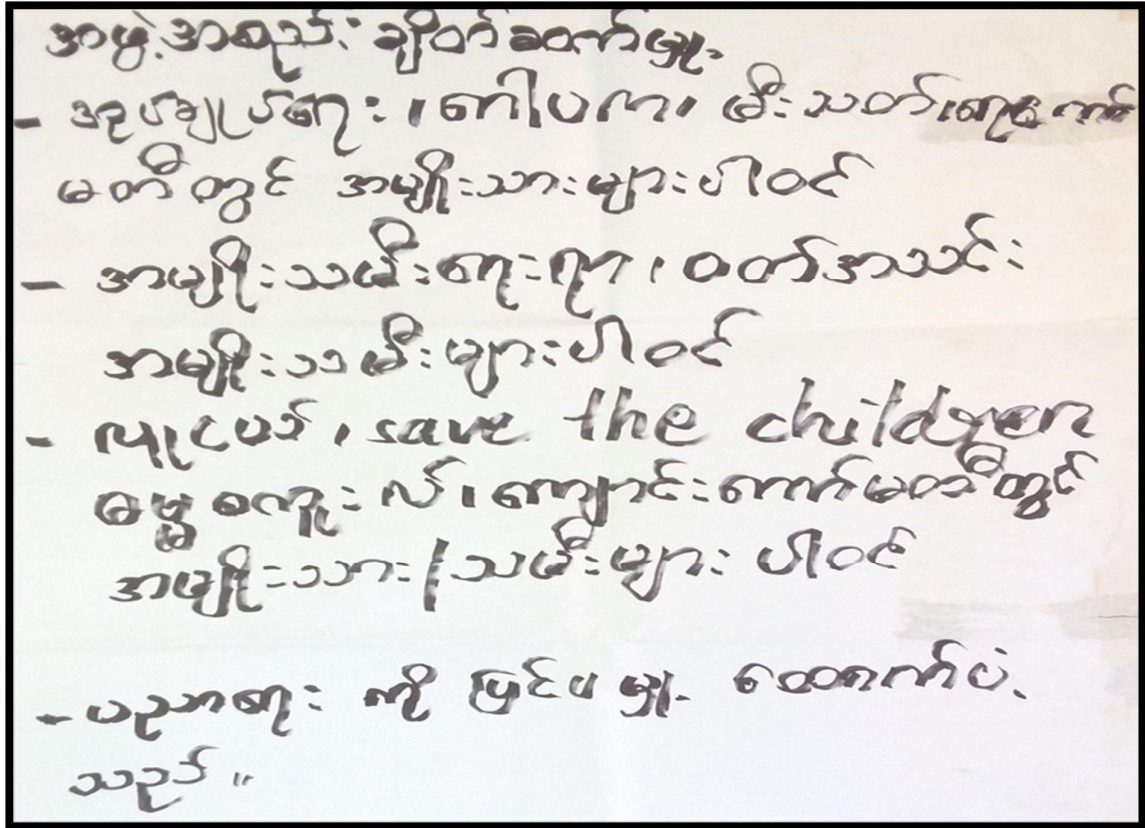 အဖွဲ့အစည်း ချိတ်ဆက်မှု
- အုပ်ချုပ်ရေး၊ ဓါပက၊ မီးသတ်၊
မတီတွင် အမျိုးသားများပါဝင်
- အမျိုးသမီးရေးရာ၊ ဝတ်အသင်း
အမျိုးသမီးများပါဝင်
- လူငယ်၊ save the children
ဓမ္မစကူးလ်၊ ကျောင်းကော်မတီတွင်
အမျိုးသား/သမီးများ ပါဝင်
- ပညာရေး ကို ပြင်ပမှ ထောက်ပံ့
သည်။